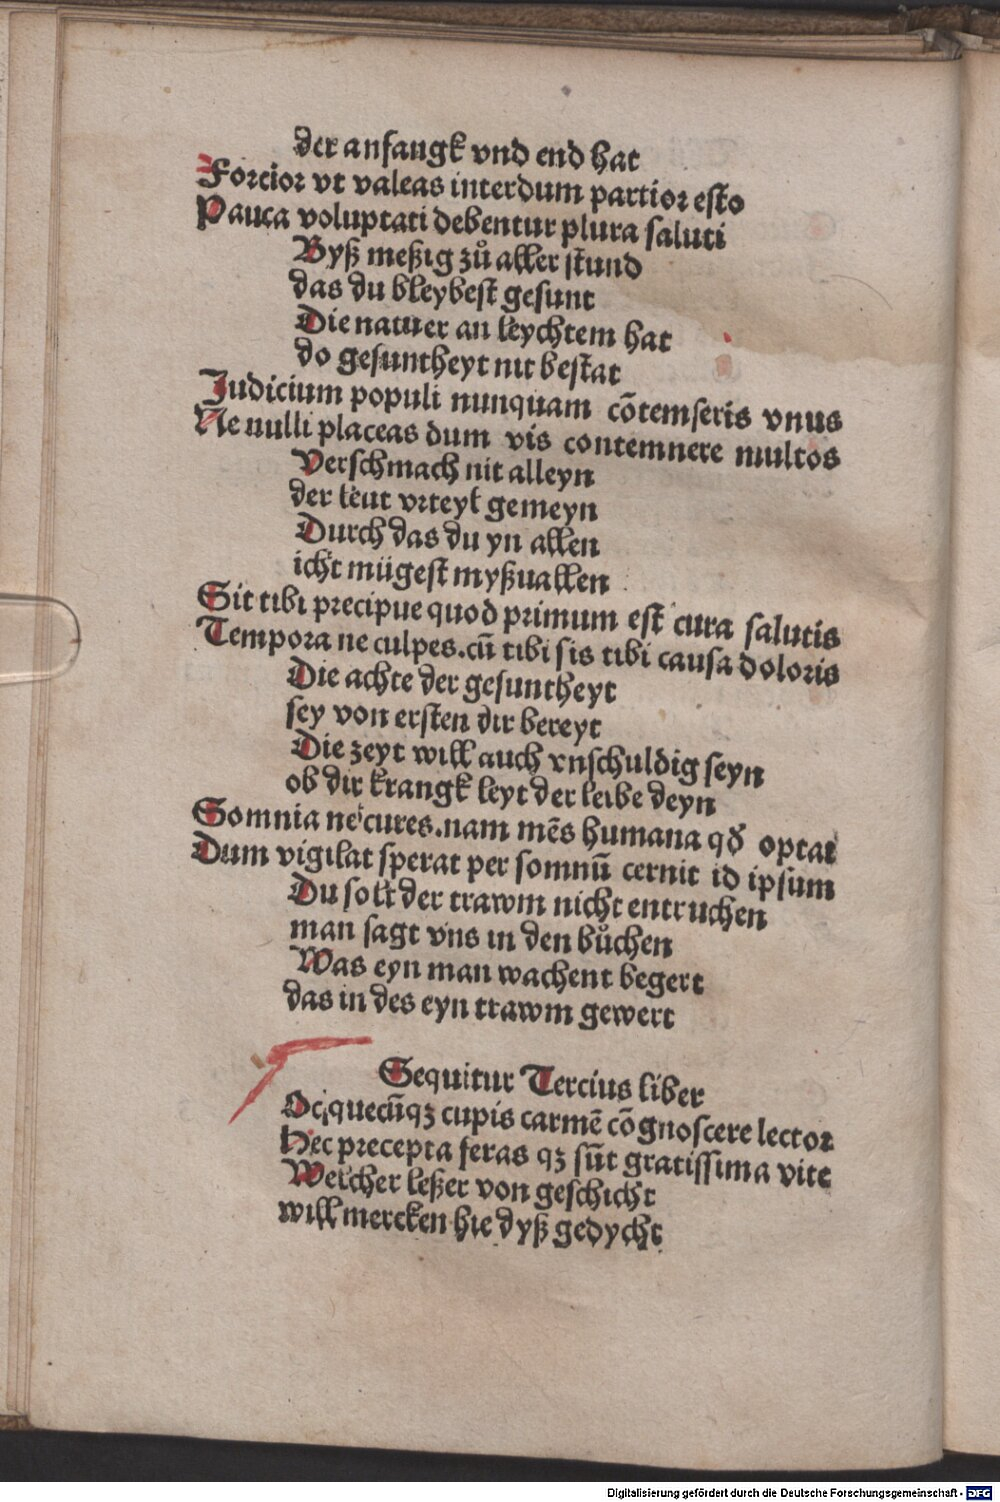 der anfangk vnd end hat
Forcior vt valeas interdum partior esto
Pauca voluptati debentur plura saluti
Byß meßig zů aller stund
das du bleybest gesunt
Die natuer an leychtem hat
do gesuntheyt nit bestat
Judicium populi nunquam cōtemseris vnus
Ne nulli placeas dum vis contemnere multos
Verschmach nit alleyn
der leut vrteyl gemeyn
Durch das du yn allen
icht mügest myßuallen
Sit tibi precipue quod primum est cura salutis
Tempora ne culpes.cū tibi sis tibi causa doloris
Die achte der gesuntheyt
sey von ersten dir bereyt
Die zeyt will auch vnschuldig seyn
ob dir krangk leyt der leibe deyn
Somnia ne cures.nam mēs humana qď optat
Dum vigilat sperat per somnū cernit id ipsum
Du solt der trawm nicht entruchen
man sagt vns in den bůchen
Was eyn man wachent begert
das in des eyn trawm gewert
Sequitur Tercius liber
Ocquecūqʒ cupis carmē cōgnoscere lector
Hec precepta feras qʒ sūt gratissima vite
Welcher leßer von geschicht
will mercken hie dyß gedycht
Digitalisierung gefördert durch die Deutsche Forschungsgemeinschaft - DFG